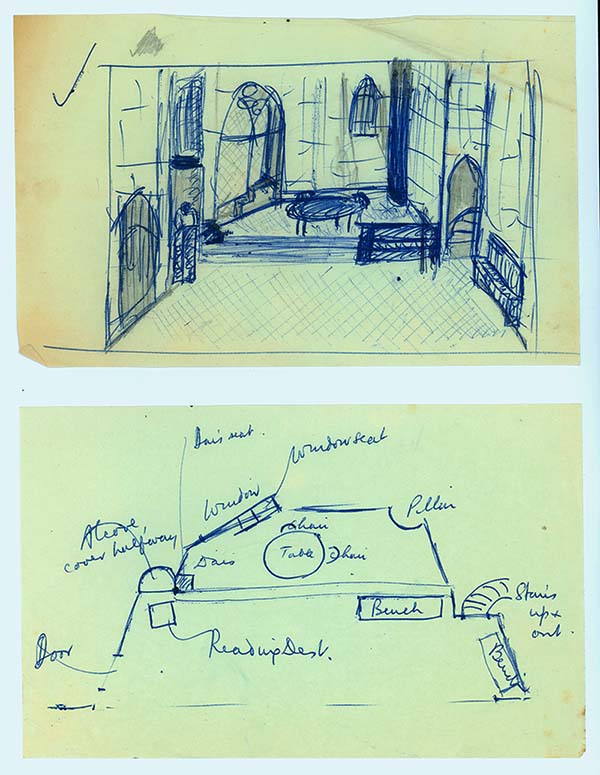 Dais seat.
Window seat
Window
Pillar
Alcove
cover halfway
Chair
Dais
Table
Chair
Bench
Stairs
up &
out.
Door
Reading Desk.
Bench